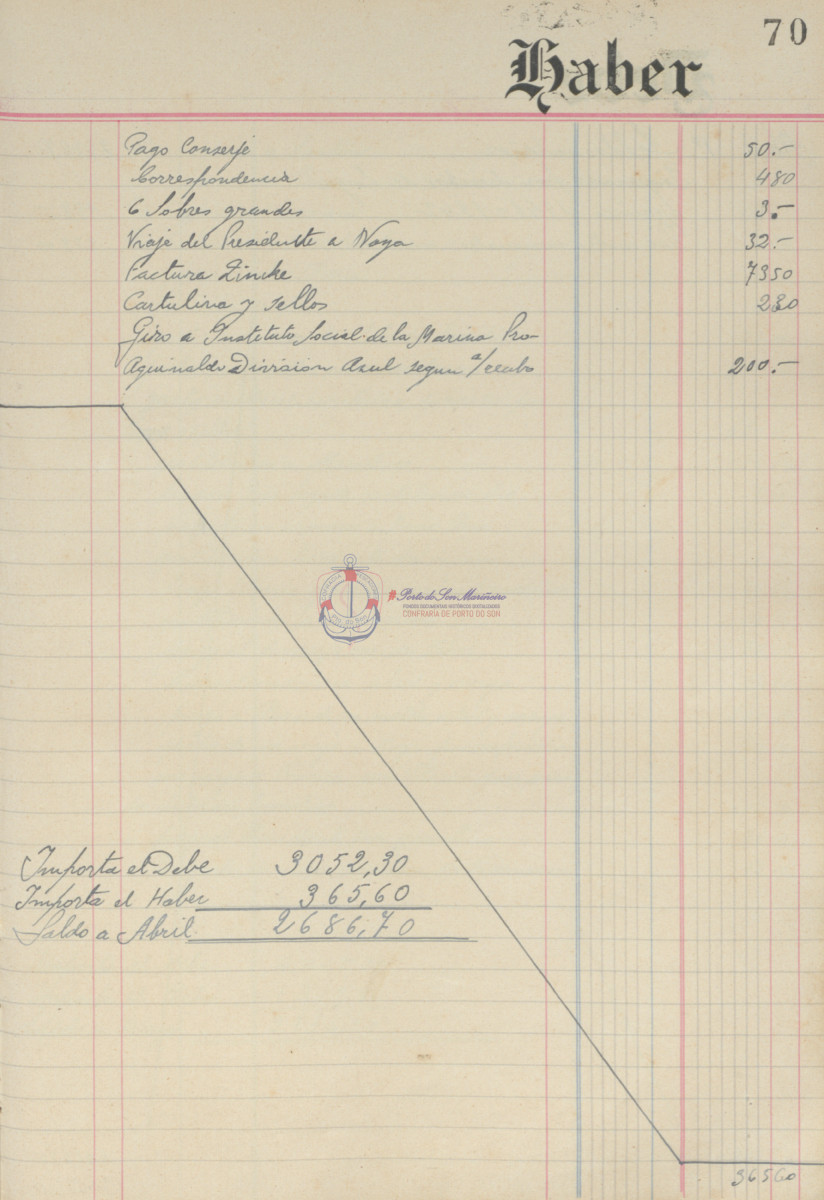 70
Haber
Pago Conserje 50.-
Correspondencia 480
6 Sobres grandes 3.-
Viaje del Presidente a Noya 32.-
Factura Zincke 7350
Cartulina y sellos 230
Giro a Instituto Social de la Marina Pro-
Aguinaldo Division Azul segun a/recibo 200.-
Importa el Debe 3052,30
Importa el Haber 365,60
Saldo a Abril 2686,70
36560
#Porto do Son Mariñeiro
FONDOS DOCUMENTAIS HISTÓRICOS DIXITALIZADOS
CONFRARÍA DE PORTO DO SON